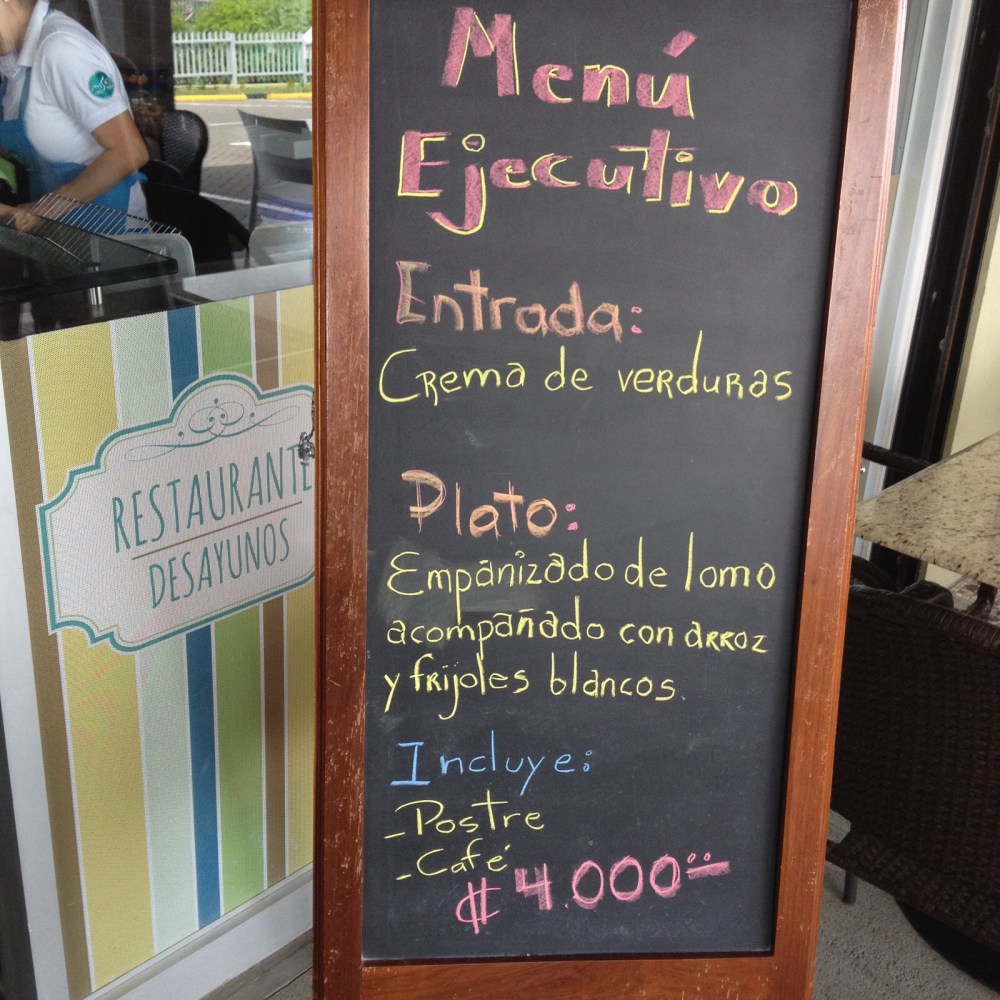 Menú
Ejecutivo
Entrada:
Crema de verduras
Plato:
Empanizado de lomo
acompañado con arroz
y frijoles blancos.
Incluye:
-Postre
-Café
₡ 4.000
RESTAURANTE
DESAYUNOS